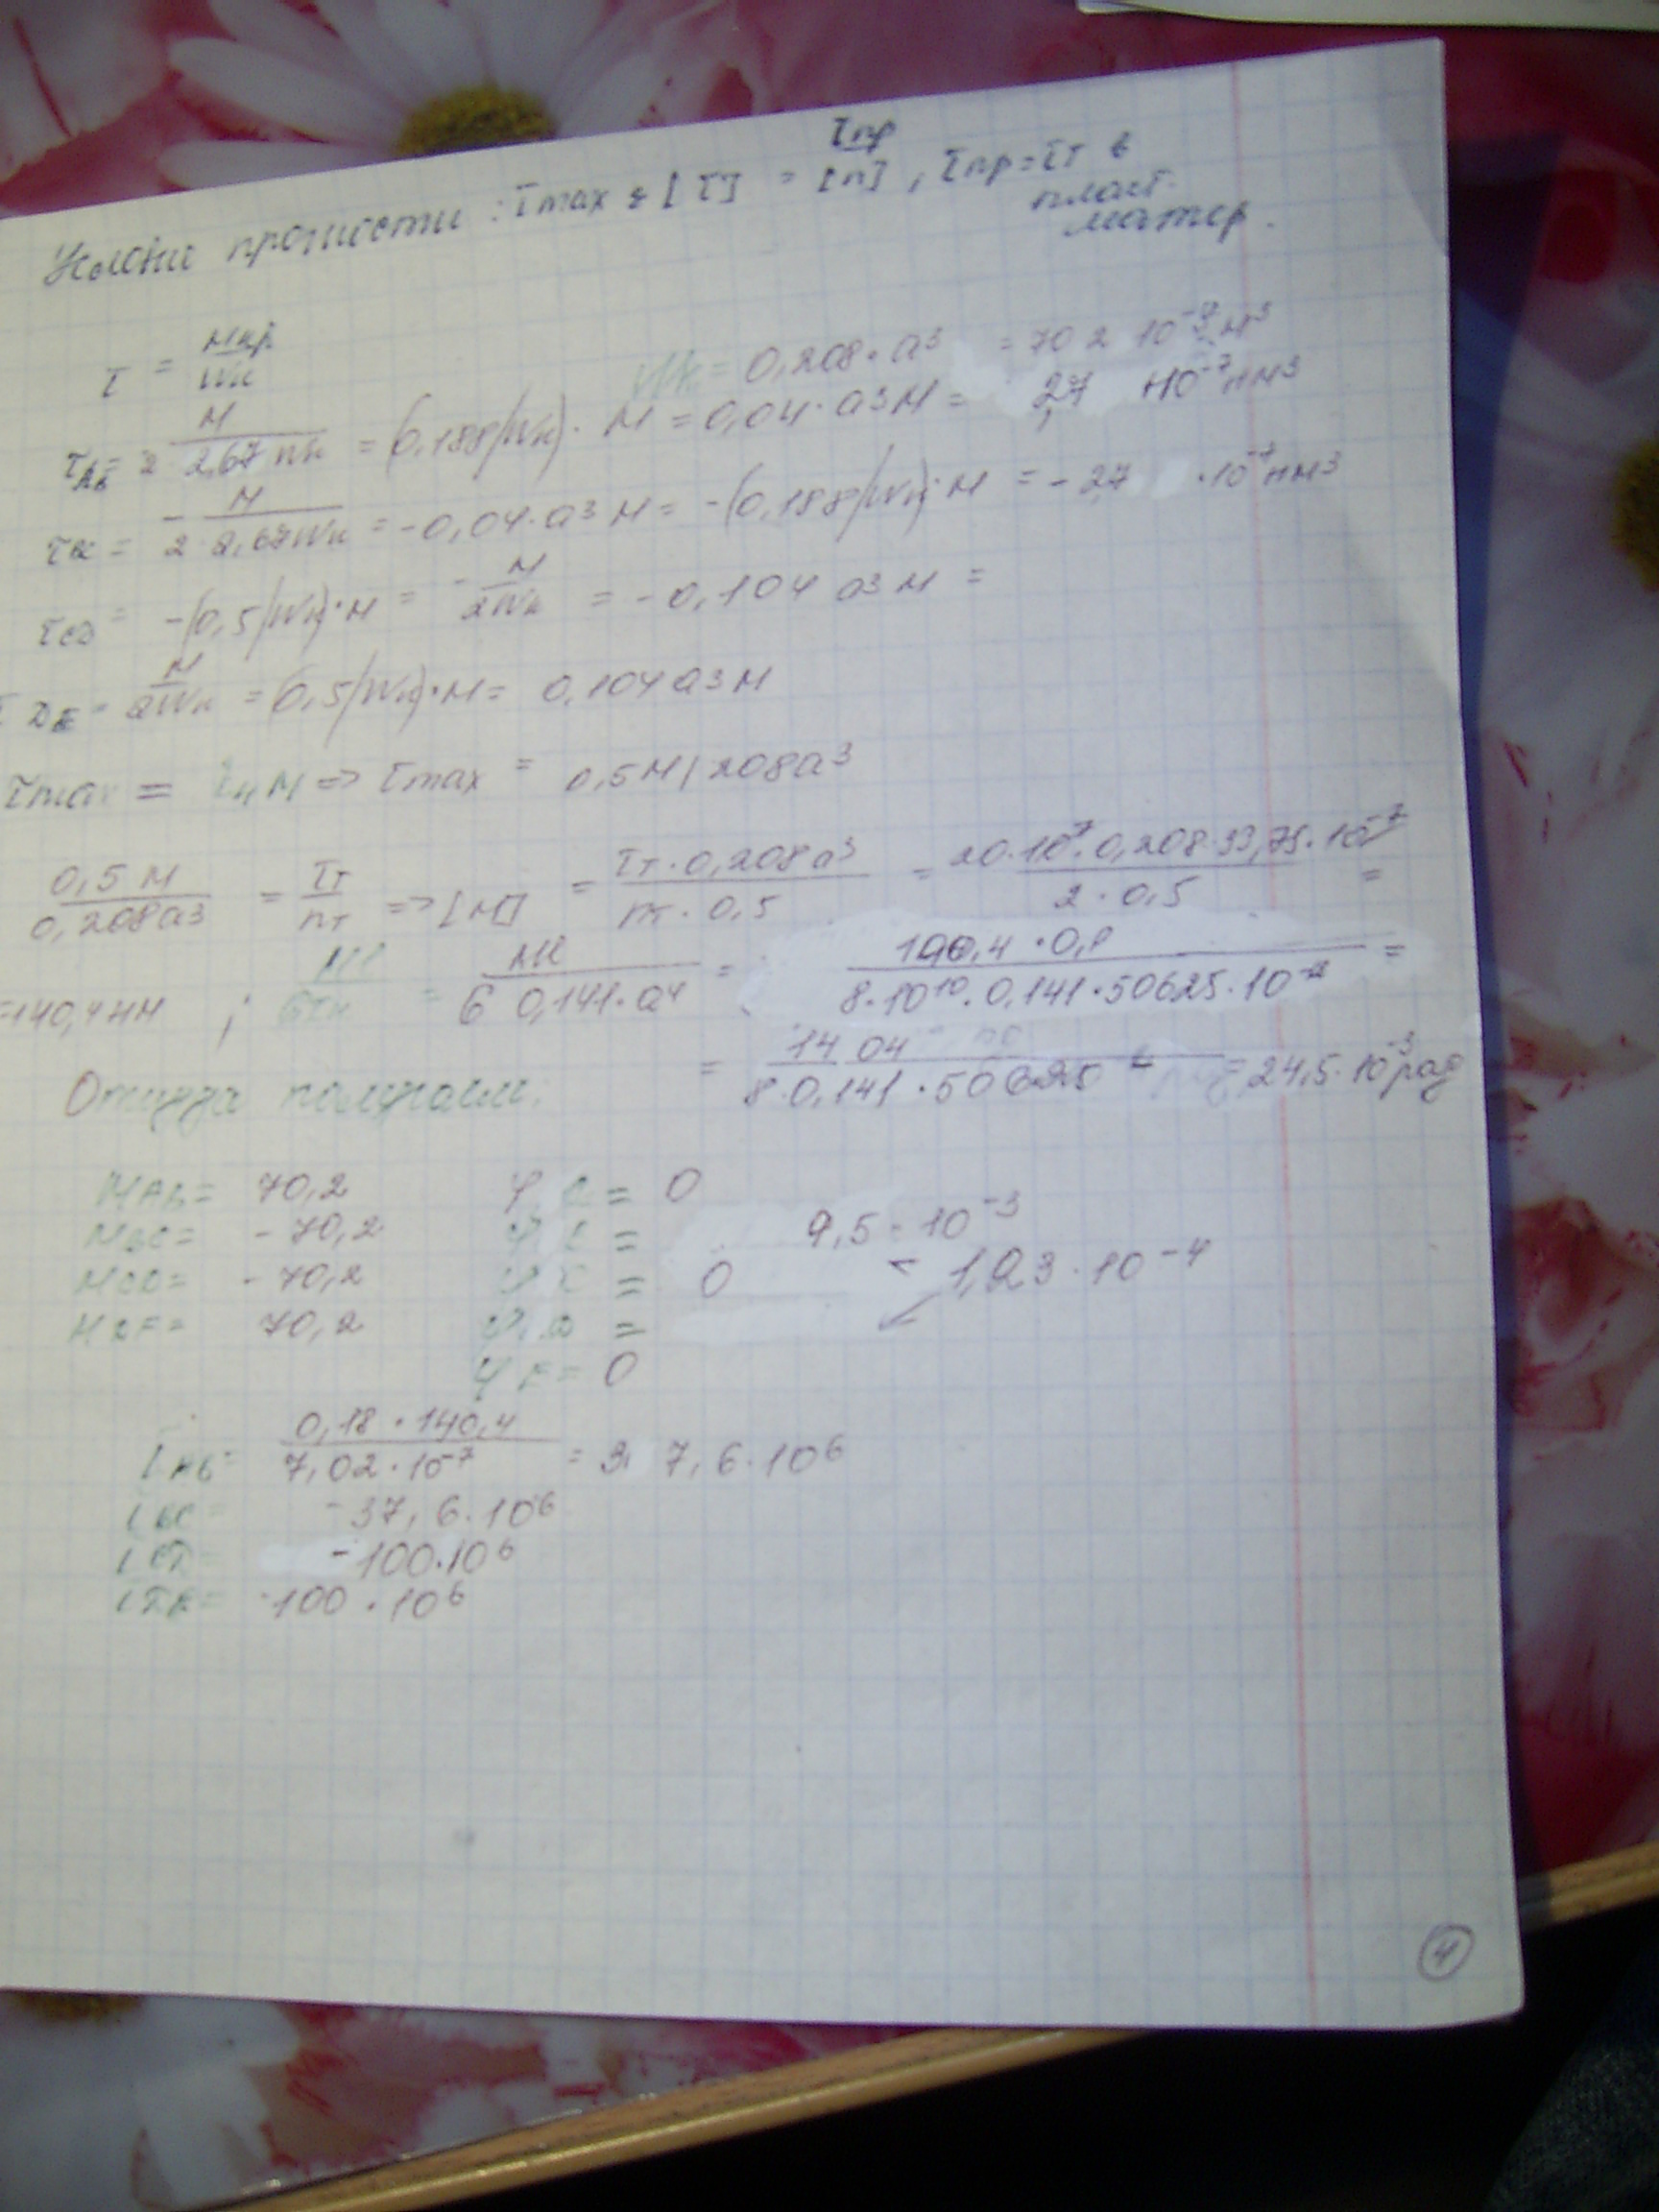 Условие прочности: τmax ≤ [τ] = τпр/[n], τпр = τт в
пласт.
матер.
τ = Мкр/Wк
Wк = 0,208·a³ = 7,02 10⁻⁷ м³
τAB = M/(2·2,67Wк) = (0,188/Wк)·M = 0,04·a³M = 2,7 ·10⁻⁷ нм³
τBC = -M/(2·2,67Wк) = -0,04·a³M = -(0,188/Wк)·M = -2,7 ·10⁻⁷ нм³
τCD = -(0,5/Wк)·M = -M/2Wк = -0,104 a³M =
τDE = M/2Wк = (0,5/Wк)·M = 0,104a³M
τmax = M => τmax = 0,5M/208a³
0,5M/0,208a³ = τт/nт => [M] = τт·0,208a³/(nт·0,5) = 20·10⁷·0,208·33,75·10⁻⁷/(2·0,5) =
=140,4нм ; = Mℓ/(G 0,141·a⁴) = 140,4·0,1/(8·10¹⁰·0,141·50625·10⁻¹²) =
Откуда получаем: = 14,04/(8·0,141·50625) = 24,5·10⁻³ рад
MAB = 70,2 φA = 0
MBC = -70,2 φB = 9,5·10⁻³
MCD = -70,2 φC = 0 - 1,23·10⁻⁴
MDE = 70,2 φD =
φE = 0
τAB = 0,18·140,4/7,02·10⁻⁷ = 37,6·10⁶
τBC = -37,6·10⁶
τCD = -100·10⁶
τDE = 100·10⁶
4